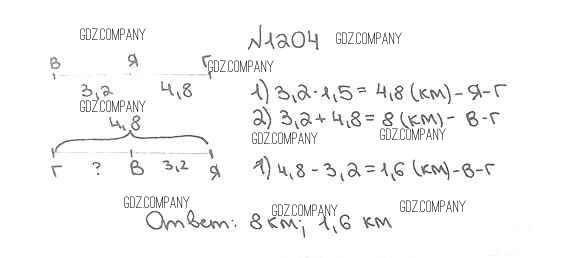 GDZ.COMPANY
№1204 GDZ.COMPANY
В Я Г GDZ.COMPANY
3,2 4,8
1) 3,2·1,5 = 4,8 (км) – Я-Г
GDZ.COMPANY
2) 3,2 + 4,8 = 8 (км) – В-Г
4,8
GDZ.COMPANY GDZ.COMPANY
Г ? В 3,2 Я
1) 4,8 – 3,2 = 1,6 (км) – В-Г
GDZ.COMPANY GDZ.COMPANY GDZ.COMPANY
Ответ: 8 км; 1,6 км